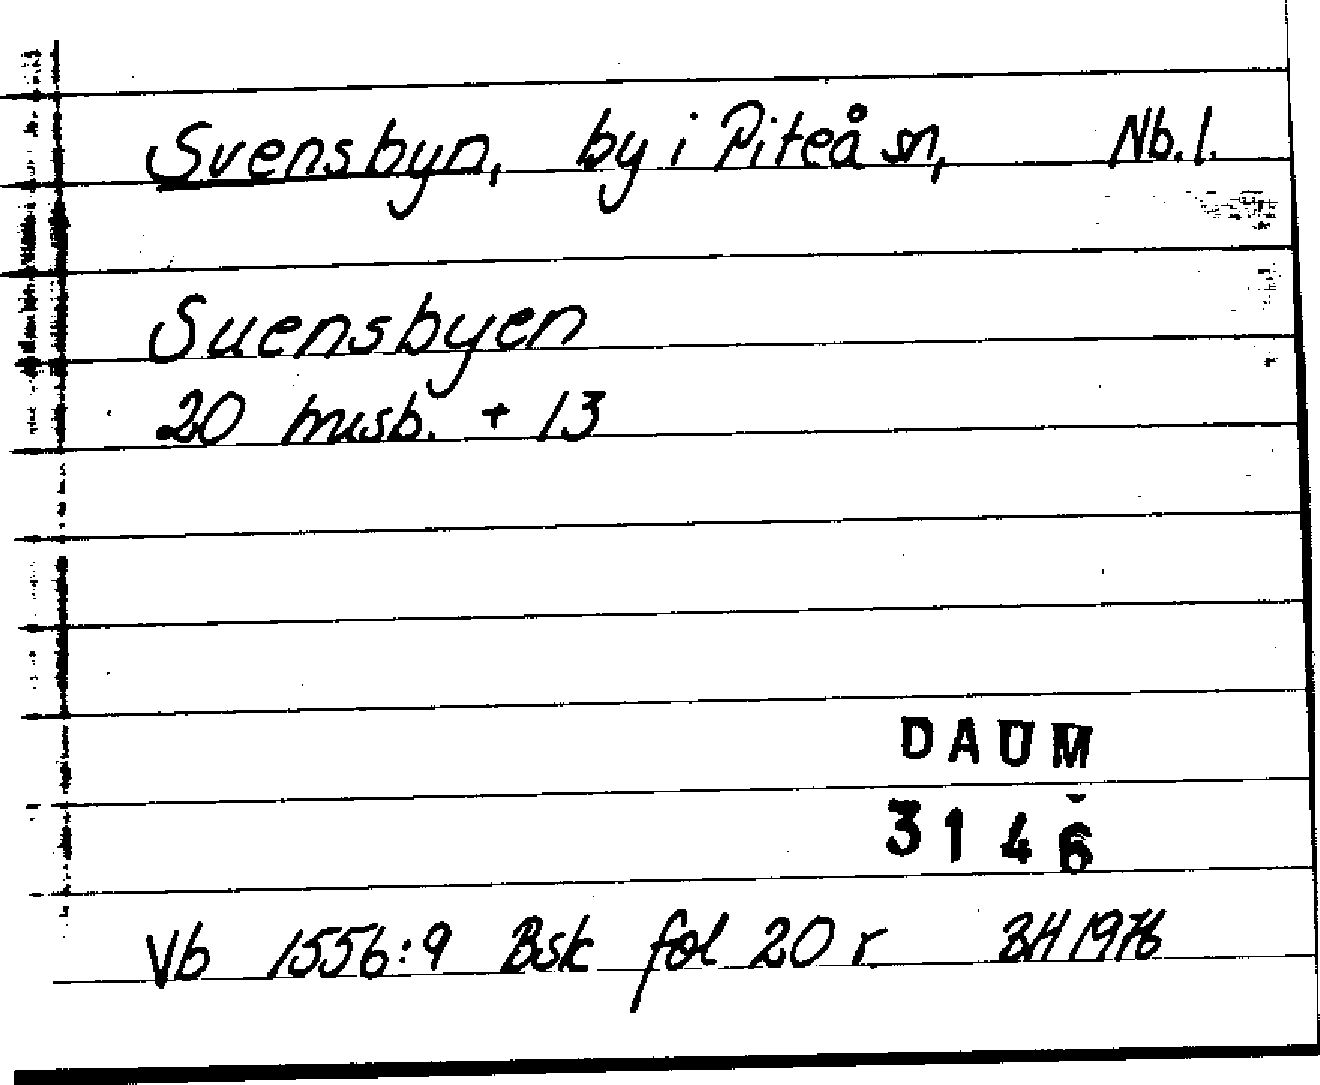 Svensbyn, by i Piteå sn, Nb. l.
Suensbyen
20 husb. + 13
DAUM
3146
Vb 1556:9 Bsk fol 20 r. BH 1976